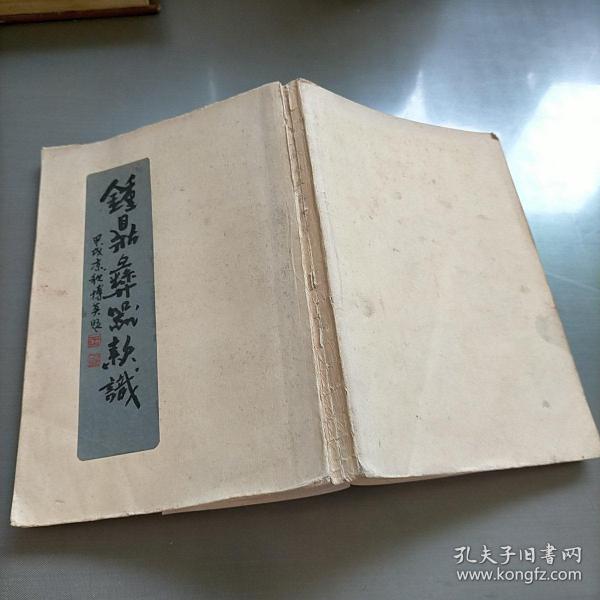 鐘鼎彝器款識
甲戌
孔夫子旧书网
www.kongfz.com